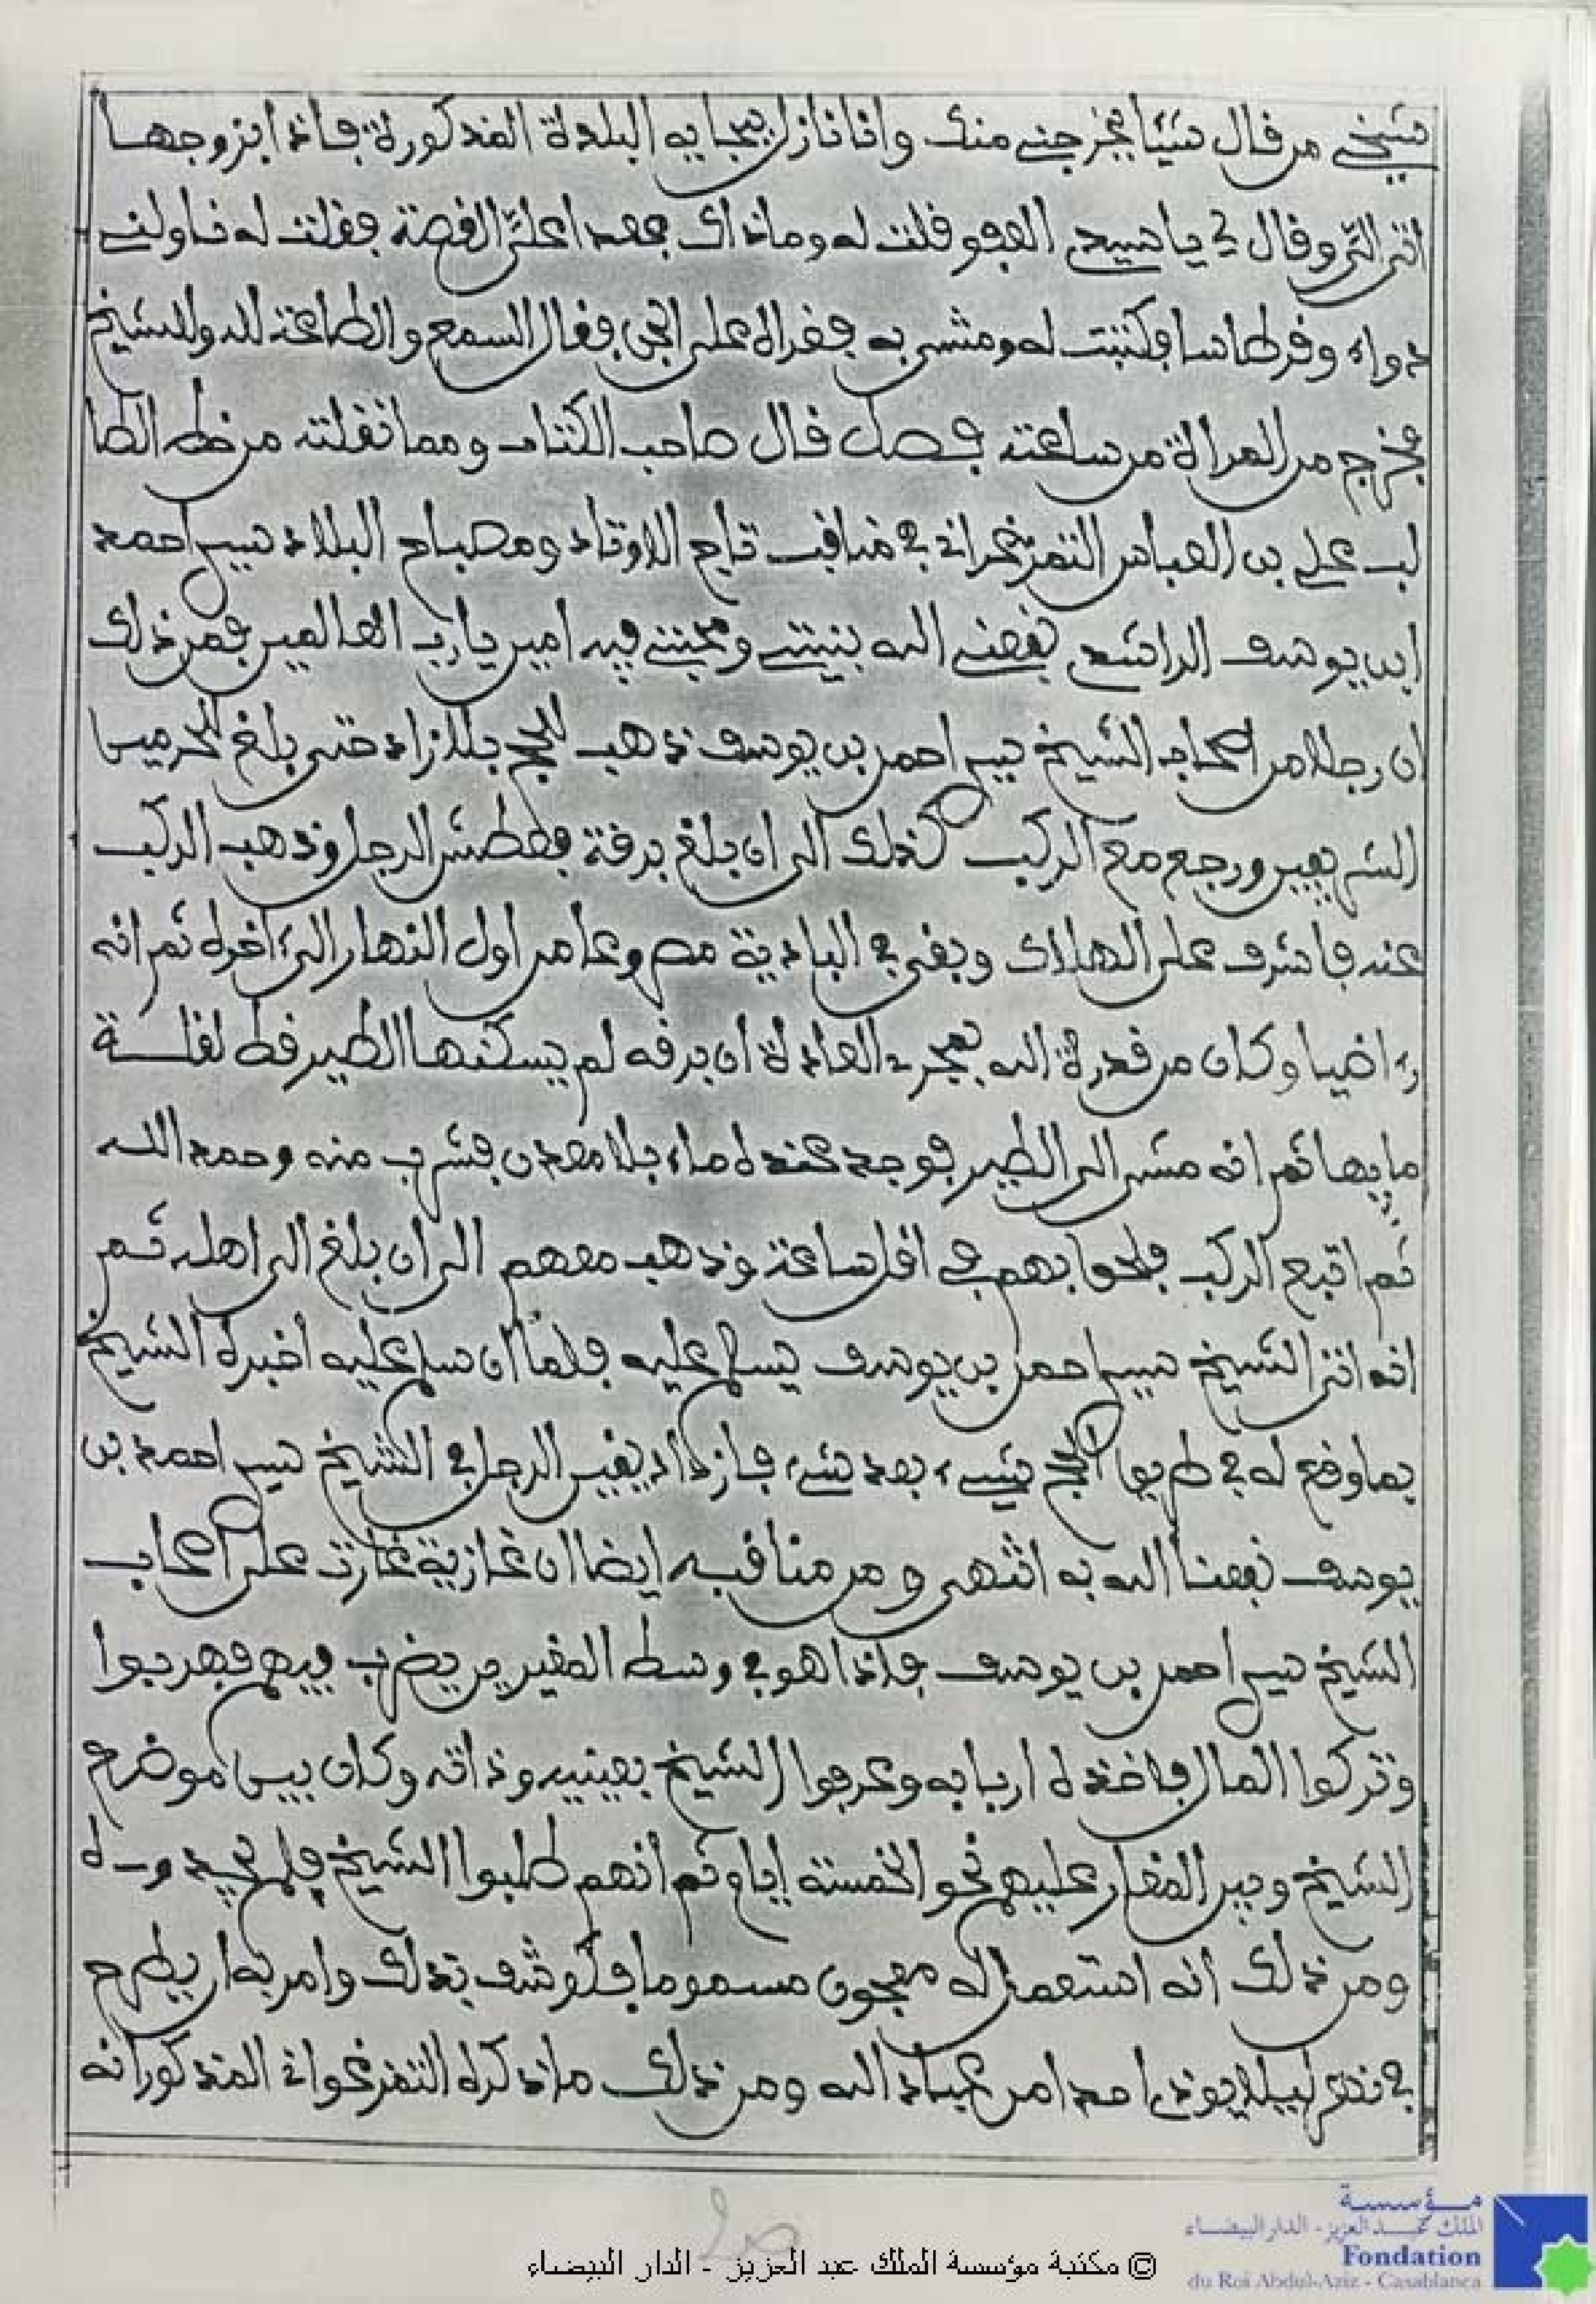 شيخي من قال شيئا يخرجني منك وانا نازل ببجاية البلدة المذكورة فاذا بزوجها
اتى الي وقال لي يا سيدي العفو فقلت له وما ذاك فعد علي القصة فقلت له ناولني
دواة وقرطاسا فكتبت له ومشى به فقراه على الجني فقال السمع والطاعة لله وللشيخ
فخرج من المراة من ساعته فصل قال صاحب الكتاب ومما نقلته من خط الطا
لب علي بن العباس التمزغراني في مناقب تاج الاوتاد ومصباح البلاد سيدي احمد
ابن يوسف الراشدي نفعني الله بنيتي ومحبتي فيه امين يا رب العالمين فمن ذلك
ان رجلا من اصحاب الشيخ سيدي احمد بن يوسف ذهب للحج بلا زاد حتى بلغ الحرمين
الشريفين ورجع مع الركب كذلك الى ان بلغ برقة فعطش الرجل وذهب الركب
عنه فاشرف على الهلاك وبقي في البادية مصروعا من اول النهار الى ءاخره ثم انه
رءا ضيا وكان من قدرة الله بمجرى العادة ان برقه لم يسكنها الطير قط لقلـــة
مايها ثم انه مشى الى الطير فوجد عنده ماء بلا معدن فشرب منه وحمد اللــه
ثم اتبع الركب فلحق بهم في اقل ساعة وذهب معهم الى ان بلغ الى اهله ثــم
انه اتى الشيخ سيدي احمد بن يوسف يسلم عليه فلما ان سلم عليه اخبره الشيخ
بما وقع له في طريق الحج شيء بعد شيء فازداد يقين الرجل في الشيخ سيدي احمد بن
يوسف نفعنا الله به انتهى ومن مناقبـه ايضا ان غازية غازت على اصحاب
الشيخ سيدي احمد بن يوسف فاذا هو في وسط المغيرين يضرب فيهم فهربوا
وتركوا المال فاخذه اربابه وعرفوا الشيخ بعينيه وذاته وكان بين موضع
الشيخ وبين المغار عليهم نحو الخمسة ايام ثم انهم طلبوا الشيخ فلم يجدوه
ومن ذلك انه استعمل له معجون مسموما فكوشف بذلك وامر به ان يطرح
في ليلا يوذي احدا من عباد الله ومن ذلك ما ذكره التمزغراني المذكور انه
© مكتبة مؤسسة الملك عبد العزيز - الدار البيضاء
مؤسسة
الملك عبد العزيز - الدار البيضاء
Fondation
du Roi Abdul-Aziz - Casablanca